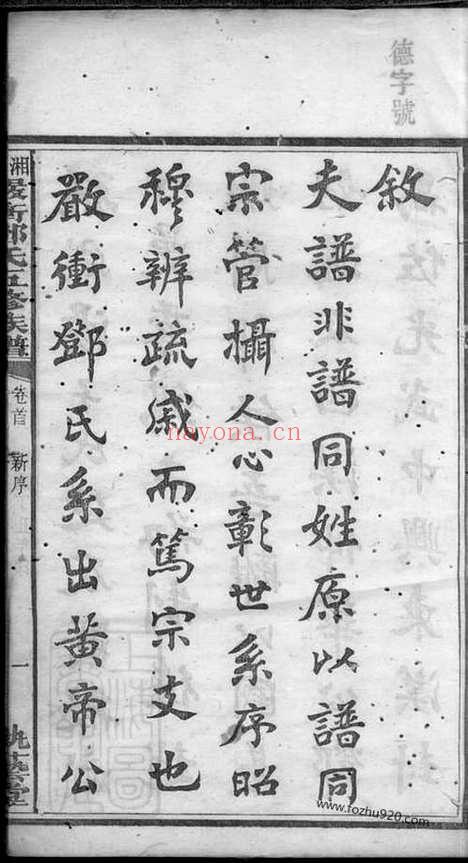 德字號
敘
夫譜非譜同姓原以譜同
宗管攝人心彰世系序昭
穆辨疏戚而篤宗支也
嚴衝鄧氏系出黃帝公
湘嚴衝鄧氏五修族譜
卷首
新序
一
nayona.cn
www.fozhu920.com